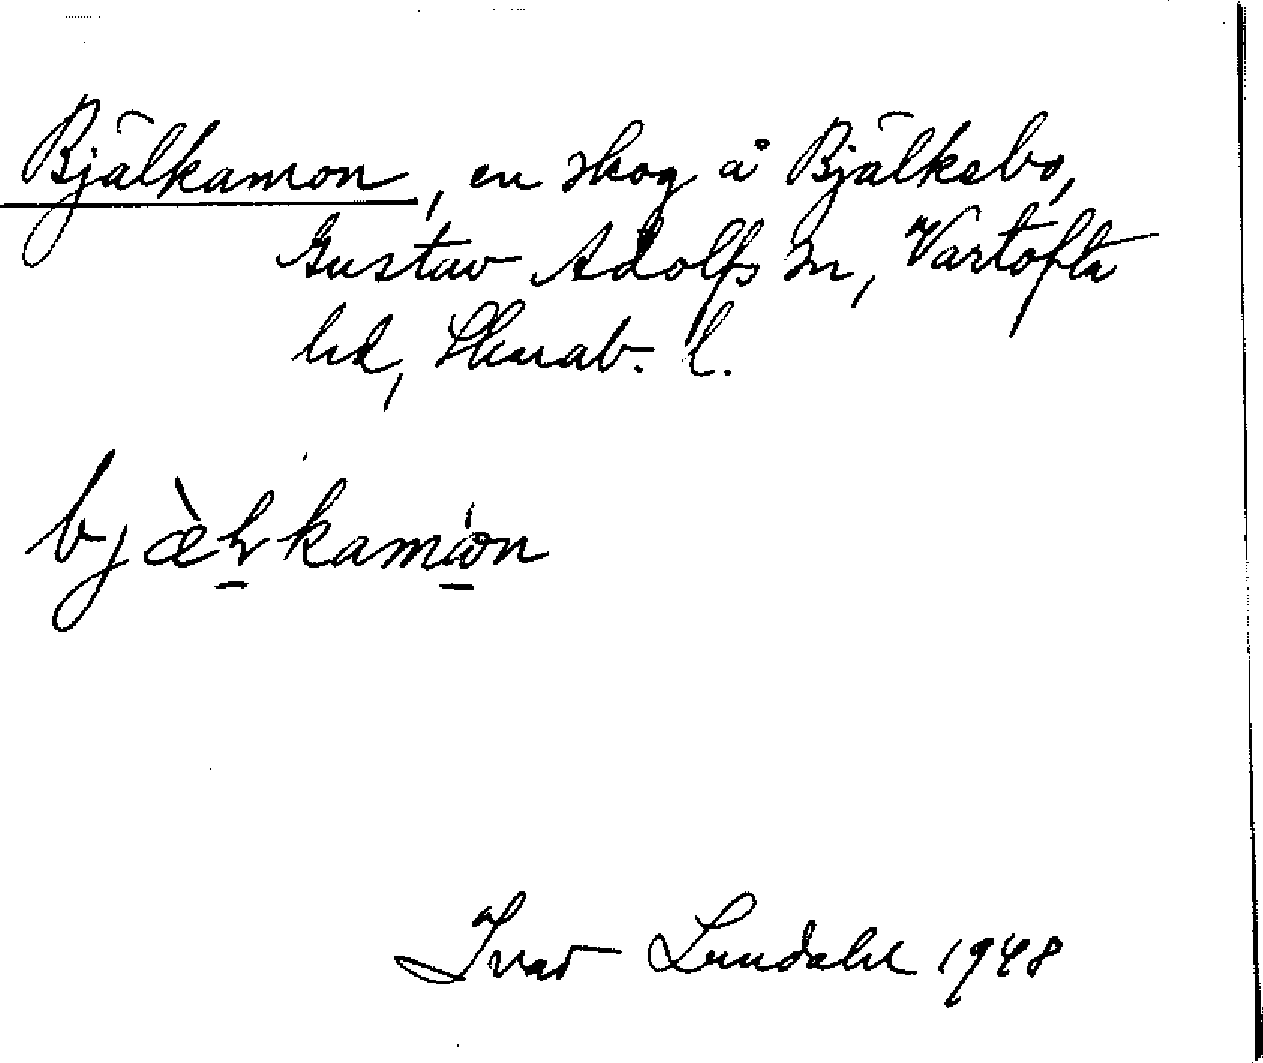 Bjälkamon, en skog å Bjälkebo,
Gustav Adolfs sn, Vartofta
hd, Skarab. l.
bjæ̀lkamón
Ivar Lundahl 1948